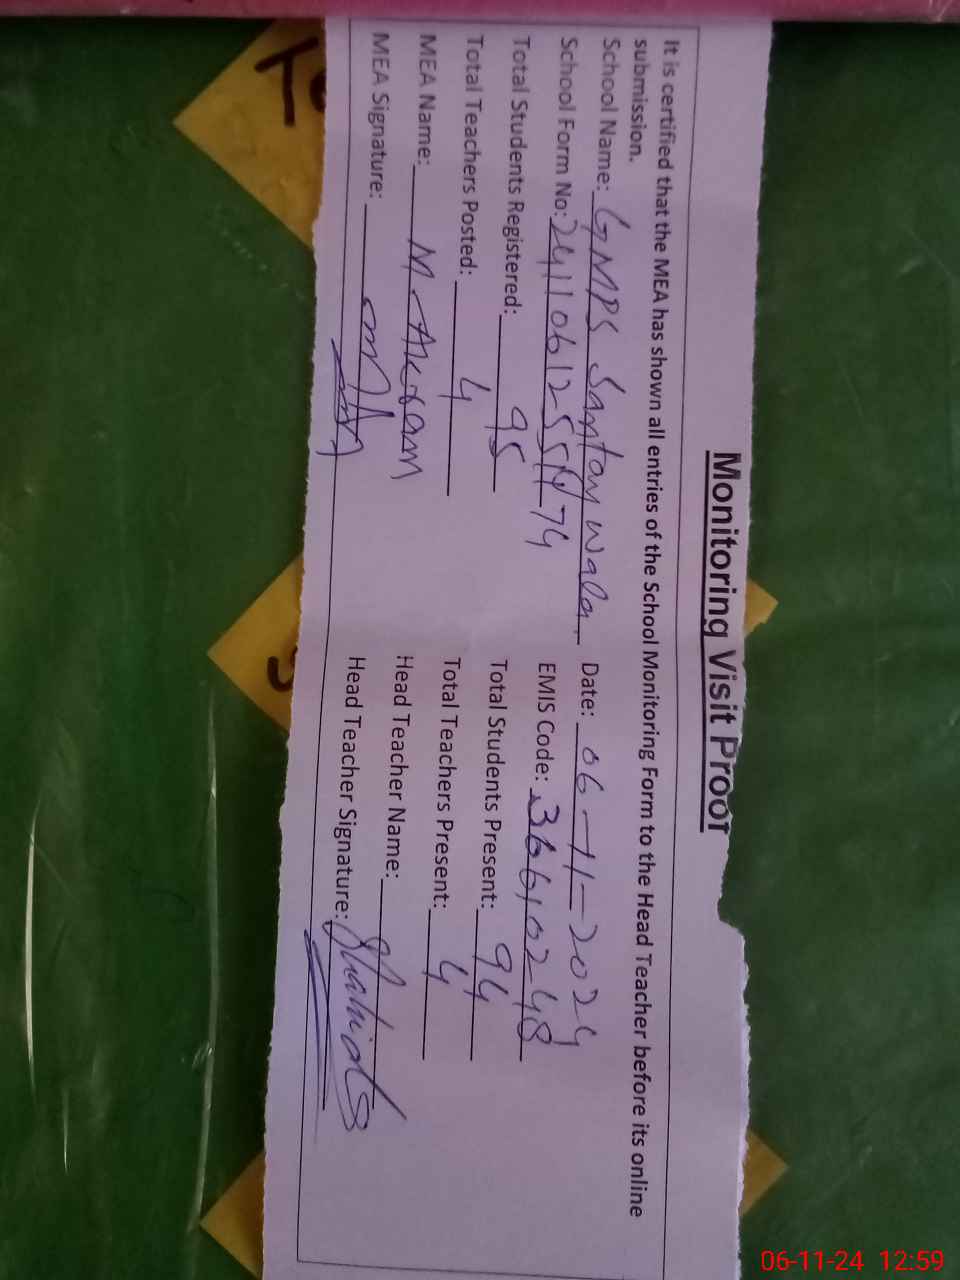 Monitoring Visit Proof
It is certified that the MEA has shown all entries of the School Monitoring Form to the Head Teacher before its online
submission.
School Name: GMPS Santay wala Date: 06-11-2024
School Form No: EMIS Code: 36610248
Total Students Registered: 95 Total Students Present: 94
Total Teachers Posted: 4 Total Teachers Present: 4
MEA Name: M. Akram Head Teacher Name:
MEA Signature: Head Teacher Signature: Shahida
06-11-24 12:59